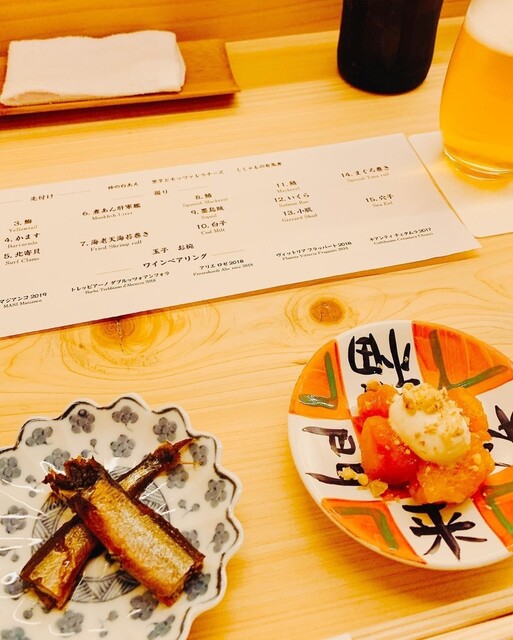 先付け 柿の白あえ 里芋とモッツァレラチーズ ししゃもの有馬煮
握り
3. 鰤
Yellowtail
4. かます
Barracuda
5. 北寄貝
Surf Clams
6. 煮あん肝軍艦
Monkfish Liver
7. 海老天海苔巻き
Fried Shrimp roll
8. 鯖
Special Mackerel
9. 墨烏賊
Squid
10. 白子
Cod Milt
11. 鰆
Mackerel
12. いくら
Salmon Roe
13. 小肌
Gizzard Shad
14. まぐろ巻き
Special Tuna roll
15. 穴子
Sea Eel
玉子 お椀
ワインペアリング
マジアンコ 2019
MASI Masianco
トレッビアーノ ダブルッツォ アンフォラ
アリエ ロゼ 2018
ヴィットリア フラッパート 2018
キアンティ チェタムラ 2017
福
来